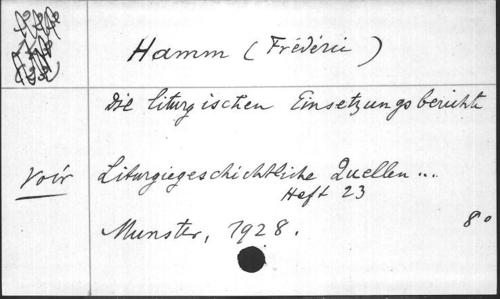 Hamm (Frédéric)
Die liturgischen Einsetzungsberichte
Voir Liturgiegeschichtliche Quellen...
Heft 23
Munster, 1928. 8°